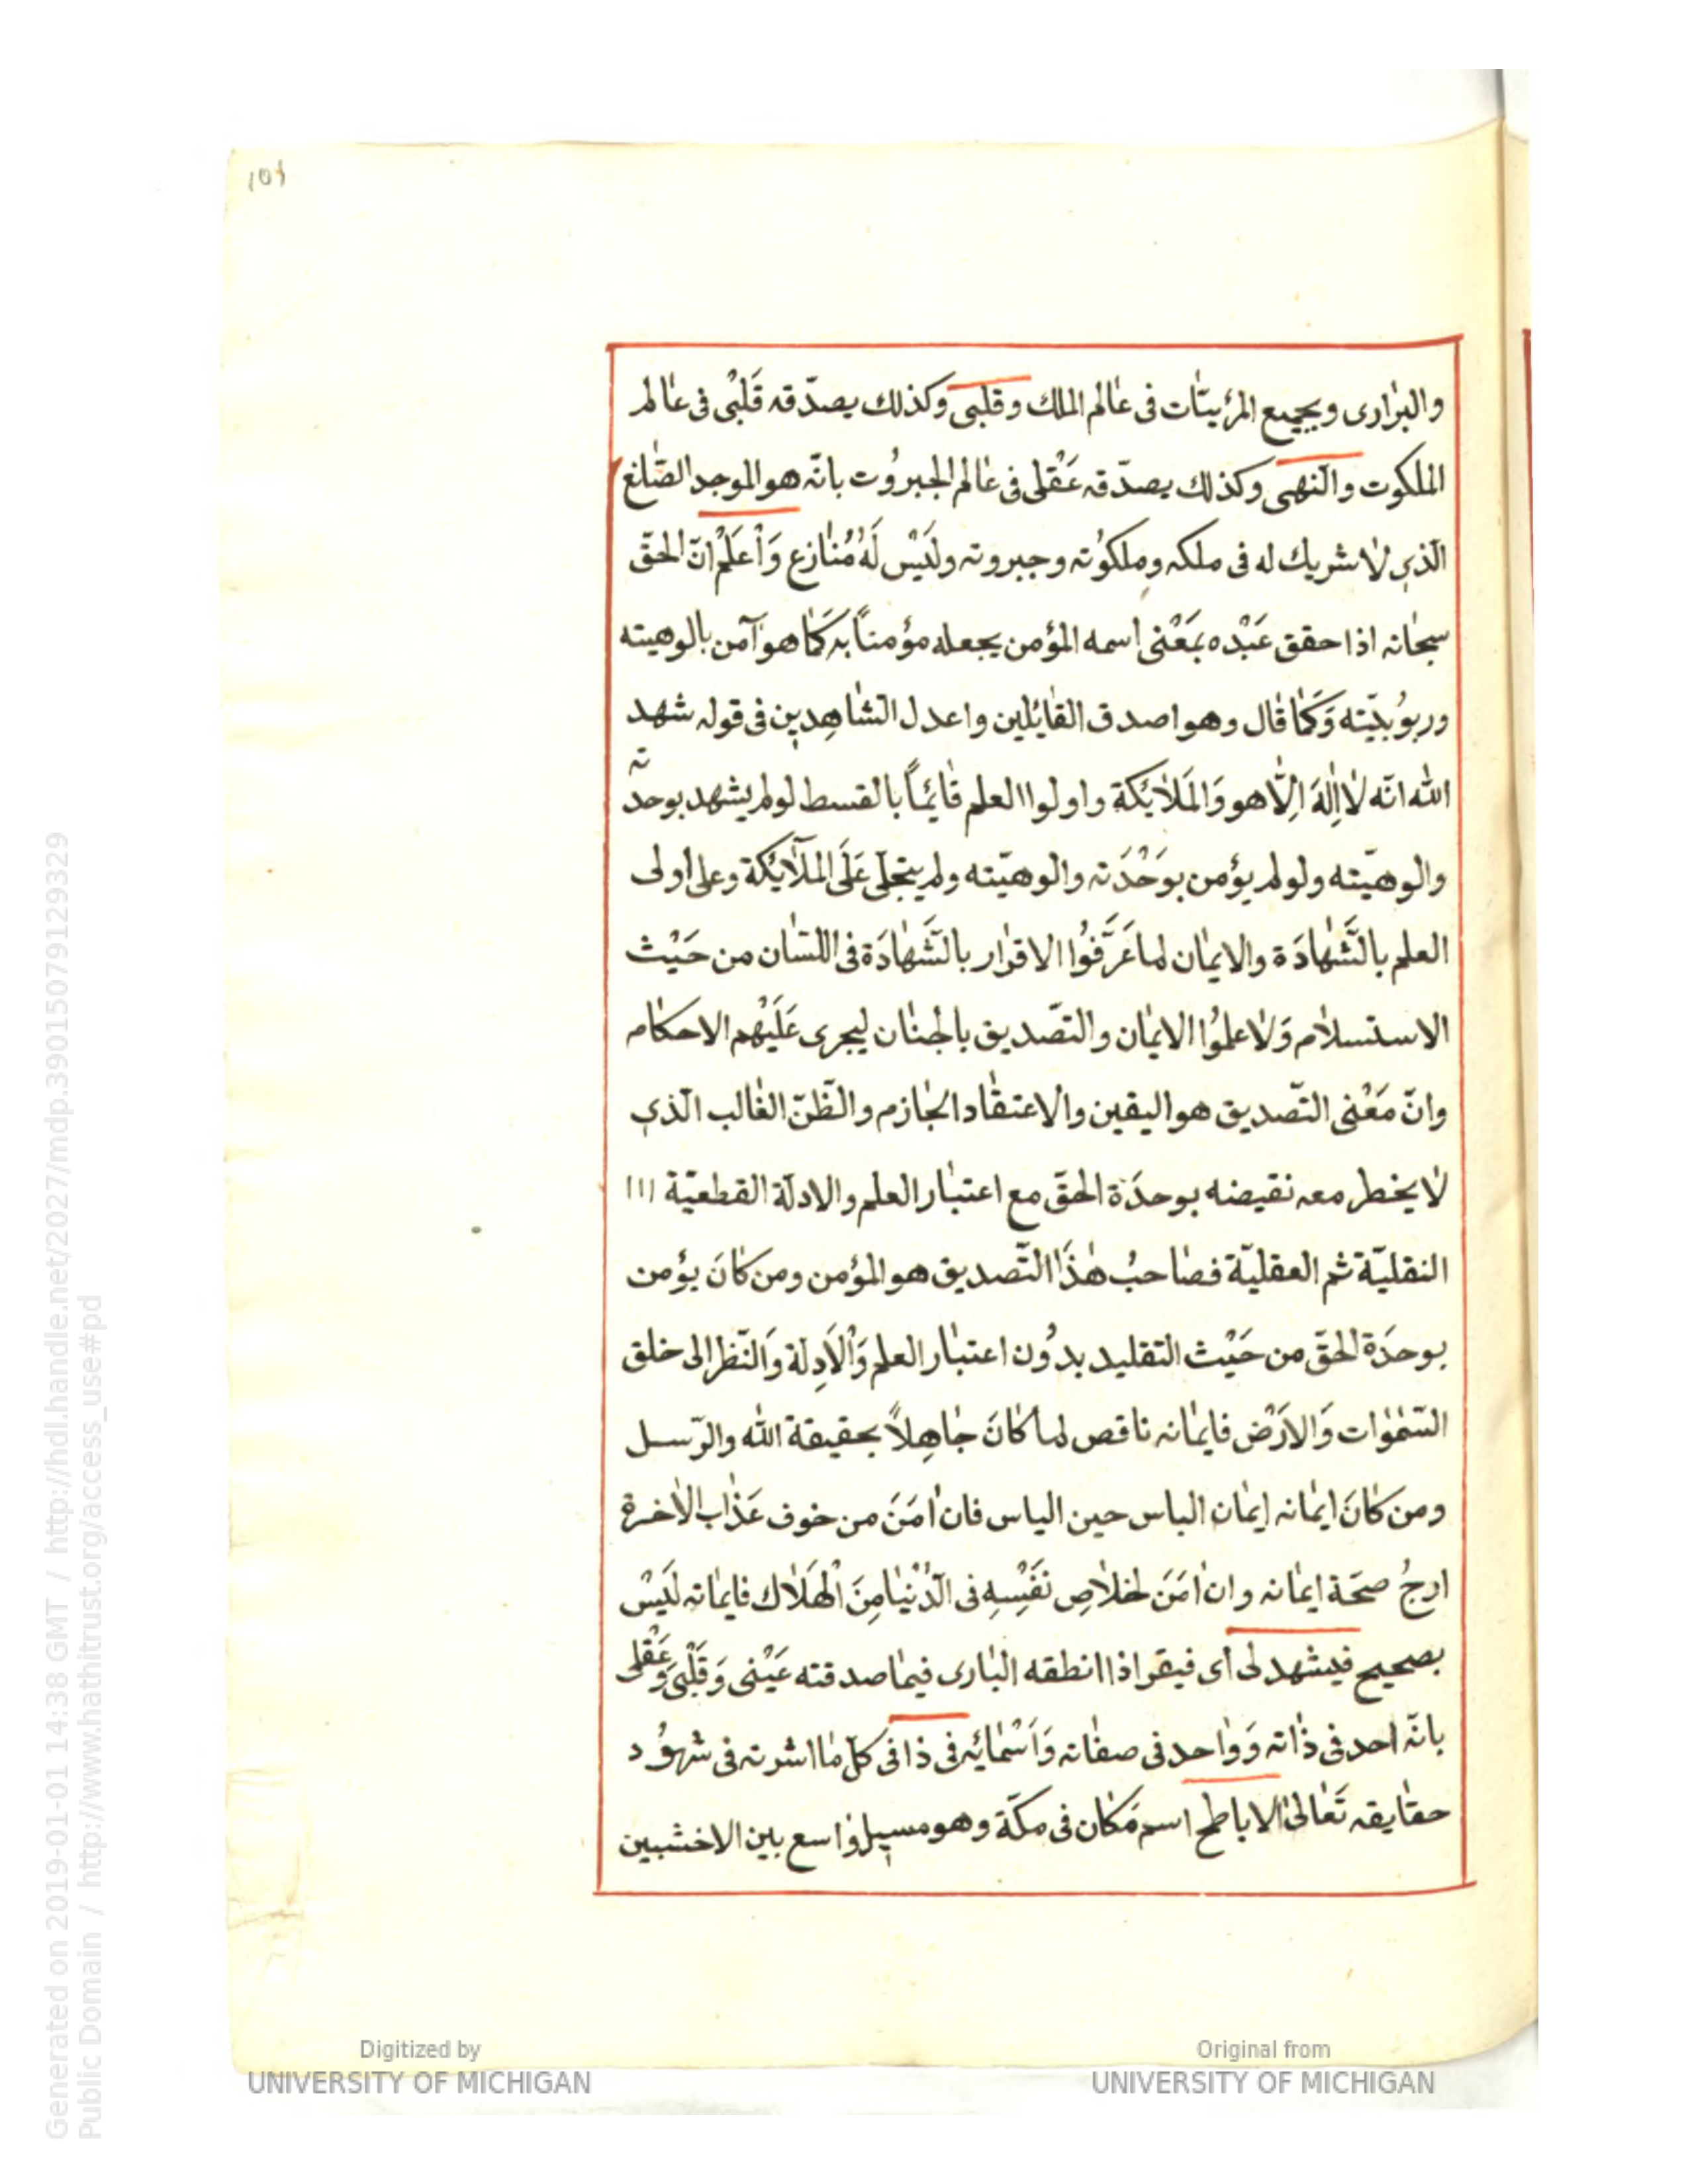 101
والبرٰارى وبجميع المرئيّٰات فى عٰالم الملك وقلبى وكذلك يصدّقه قَلبْى فى عٰالم
الملكوت والنهى وكذلك يصدّقه عَقْلى فى عٰالم الجبرُوت بانّه هو الموجد الصّٰانع
الّذى لٰا شريك له فى ملكه وملكوُته وجبروته ولَيْس لَهُ مُنٰازع وَاْعلَمْ انّ الحقّ
سبحٰانه اذا حقق عَبْده بمَعْنى اسمه المؤمن يجعله مؤمناً به كَمٰا هو آمن بالوهيته
وربوُبيّته وَكَمٰا قٰال وهو اصدق القٰائلين واعدل الشٰاهِدين فى قوله شهد
الله انّه لٰا اِلٰهَ اِلّٰا هو وَالمَلٰايُكة واولوا العلم قٰائماً بالقسط لو لم يشهد بوحدّته
والوهيّته ولو لم يؤمن بوَحْدَته والوهيّته ولم يتجلّى عَلَى الملٓايُكة وعلى اُولى
العلم بالَشّهٰادَة والايمٰان لما عَرَّفُوا الاقرٰار بالَشّهٰادَة فى اللسٰان من حَيْث
الاستسلٰام وَلٰا علموُا الايمٰان والتصّديق بالجنٰان ليجرى عَلَيْهم الاحكٰام
وانّ مَعْنى التصّديق هو اليقين والاعتقٰاد الجٰازم والظّنّ الغٰالب الّذى
لٰا يخطر معه نقيضه بوحدَة الحقّ مع اعتبٰار العلم والادلّة القطعيّة ااا
النقليّة ثم العقليّة فصٰاحبُ هٰذَا التّصديق هو المؤمن ومن كٰانَ يؤمن
بوحدَة الحقّ من حَيْث التقليد بدوُن اعتبٰار العلم وَاْلاَدِلة وَالنّظر الى خلق
السّمٰوٰات وَالارَضْ فايمٰانه ناقص لما كٰانَ جٰاهِلاً بحقيقة الله والرّسل
ومن كٰانَ ايمٰانه ايمٰان الباس حين الياس فان اٰمَنَ من خوف عَذٰاب الاٰخرة
ارجُ صحّة ايمٰانه وان اٰمَنَ لخلٰاصِ نَفَسِْهِ فى الدّنْيٰا مِنَ اْلهَلٰاك فايمٰانه لَيَسْ
بصحيح فيشهد لى اى فيقر اذا انطقه البٰارى فيمٰا صدقته عَيْنى وَقَلْبى وَعَقْلى
بانّه احد فى ذٰاته وَوٰاحد فى صفٰاته وَاَسْمٰائه فى ذا فى كلّ مٰا اشرته فى شهوُد
حقٰايقه تَعٰالىٰ الاباطح اسم مَكٰان فى مكّة وهو مسيل وٰاسع بين الاخشبين
Generated on 2019-01-01 14:38 GMT / http://hdl.handle.net/2027/mdp.39015079129329
Public Domain / http://www.hathitrust.org/access_use#pd
Digitized by
UNIVERSITY OF MICHIGAN
Original from
UNIVERSITY OF MICHIGAN